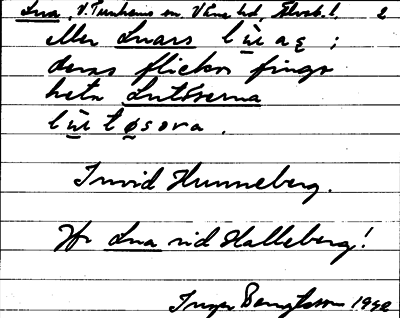 Lua, V. Tunhems sn, Väne hd, Älvsb. l. 2
eller Luars l ü a ę ;
deras flickor fingo
heta Lutöserna
l ü t ø s o r a .
Invid Hunneberg.
Hr Lua vid Halleberg!
Inger Bengtsson 19